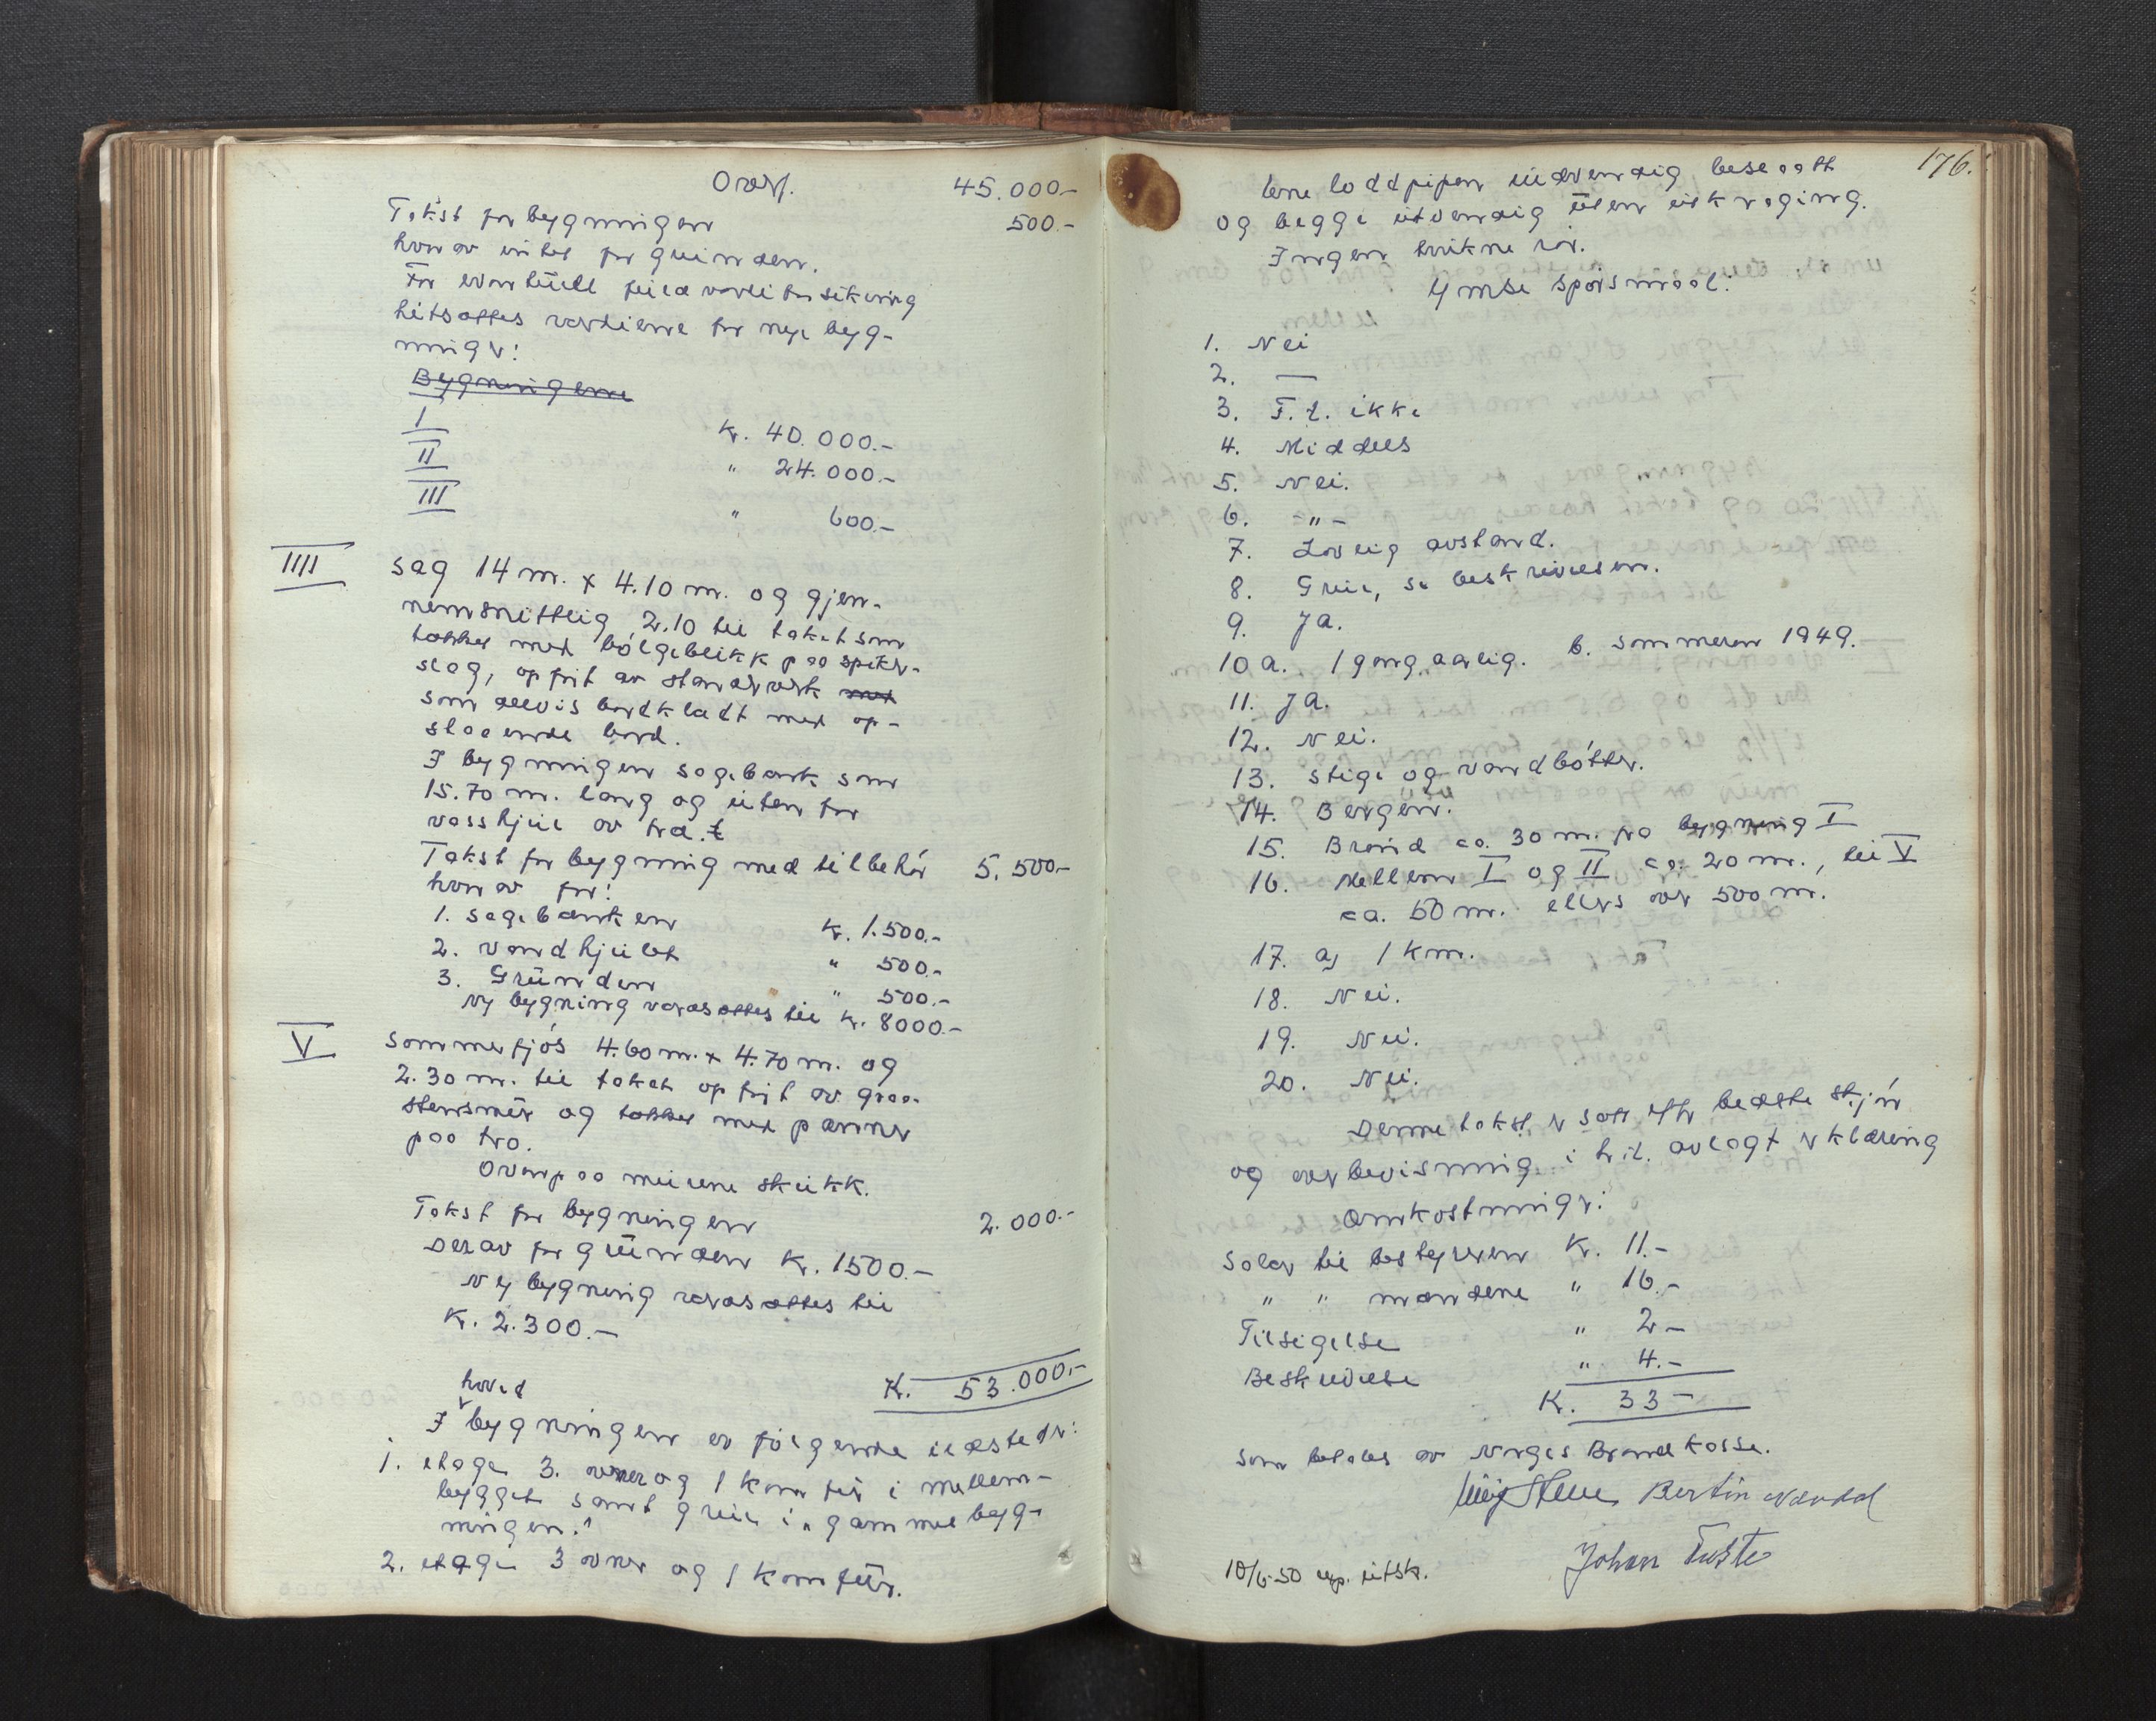 Overf. 45.000.-
Takst for bygningen 500.-
hvorav intet for grunden.
For eventuell fuldverdiforsikring
hitsættes verdierne for nye byg-
ninger:
Bygningene
I Kr. 40.000.-
II " 24.000.-
III " 600.-
IIII Sag 14 m. x 4.10 m. og gjen-
nemsnittlig 2.10 til taket som
tækket med bølgeblikk paa spiker-
slag, opført av standerverk med
som delvis bordklædt med op-
staaende bord.
I bygningen sagebænk som
15.70 m. lang og uten for
vasshjul av træ.
Takst for bygning med tilbehør 5.500-
hvorav for:
1. Sagebænken Kr. 1.500.-
2. Vandhjulet " 500.-
3. Grunden " 500.-
Ny bygning verdsættes til Kr. 8000.-
V Sommerfjøs 4.60 m. x 4.70 m. og
2.30 m. til taket opført av graa-
stensmur og tækket med panner
paa tro.
Ovenpaa murene skukk.
Takst for bygningen 2.000.-
Derav for grunden Kr. 1500.-
Ny bygning verdsættes til
Kr. 2.300.-
Kr. 53.000.-
hoved
I bygningen er følgende ildsteder:
1. etage 3. ovner og 1 komfur i mellem-
bygget samt grue i "gammelbyg-
ningen."
2. etage 3 ovner og 1 komfür.
176.
loddpipen indvendig beseatt
og begge utvendig uten utkraging.
Ingen trukne rør.
Ymse spørsmaal:
1. Nei
2. —
3. F. t. ikke
4. Middels
5. Nei.
6. -"-
7. Lovlig avstand.
8. Grue, se beskrivelsen.
9. Ja.
10 a. 1 gang aarlig. b. Sommeren 1949.
11. Ja.
12. Nei.
13. Stige og vandbøtter.
14. Bergen.
15. Brønd ca. 30 m. fra bygning I
16. Mellem I og II ca. 20 m., til V
ca. 50 m. ellers over 500 m.
17. a) 1 km.
18. Nei.
19. Nei.
20. Nei.
Denne takst er satt efter bedste skjøn
og overbevisning i h.t. avlagt erklæring
Omkostninger:
Salær til bestyreren Kr. 11.-
" " mændene " 16.-
Tilsigelse " 2-
Beskrivelse " 4.-
Kr. 33-
som betales av Norges Brandkasse.
Bertin
Johan
10/6-50 utsk.